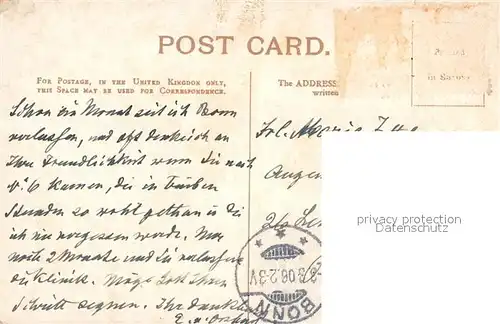 POST CARD.
FOR POSTAGE, IN THE UNITED KINGDOM ONLY,
THIS SPACE MAY BE USED FOR CORRESPONDENCE.
The ADDRESS
written
Printed
in Saxony
Schon ein Monat seit ich Bonn
verlassen, und oft denke ich an
Ihre Freundlichkeit wenn Sie nach
No 6 kamen, die in trüben
Stunden so wohl gethan u die
ich nie vergessen werde. Nur
noch 2 Monate und Sie verlassen
die Klinik. Möge Gott Ihre
Schritte segnen. Ihr dankb
Frl. Maria
Augen
26
privacy protection
Datenschutz
3.06.2-3V
BONN